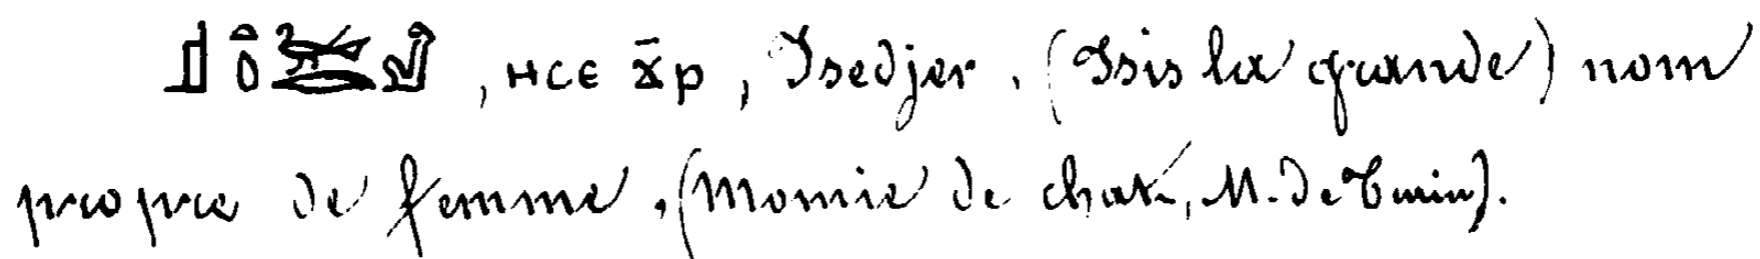 𓊨𓏏𓆇, ⲏⲥⲉ ϫ̄ⲣ, Isedjer. (Isis la grande) nom
propre de femme. (Momie de chat, M. de Turin).